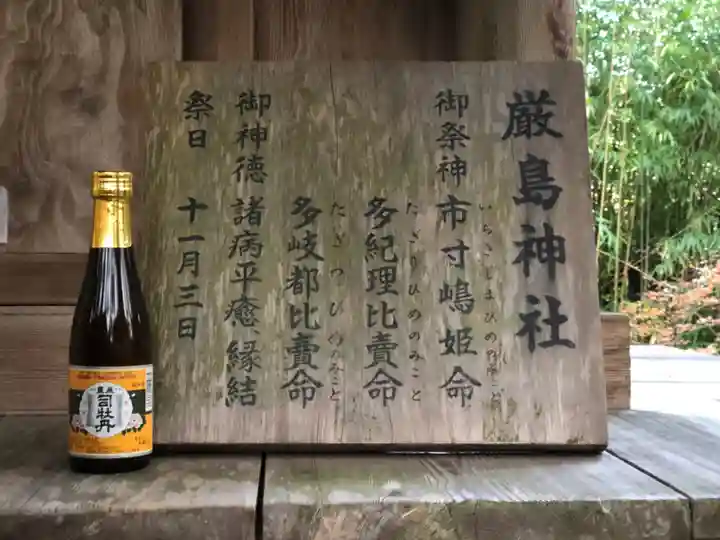 厳島神社
御祭神 市寸嶋姫命
多紀理比賣命
たぎりひめのみこと
多岐都比賣命
たぎつひめのみこと
御神徳 諸病平癒、縁結
祭日 十一月三日
司牡丹